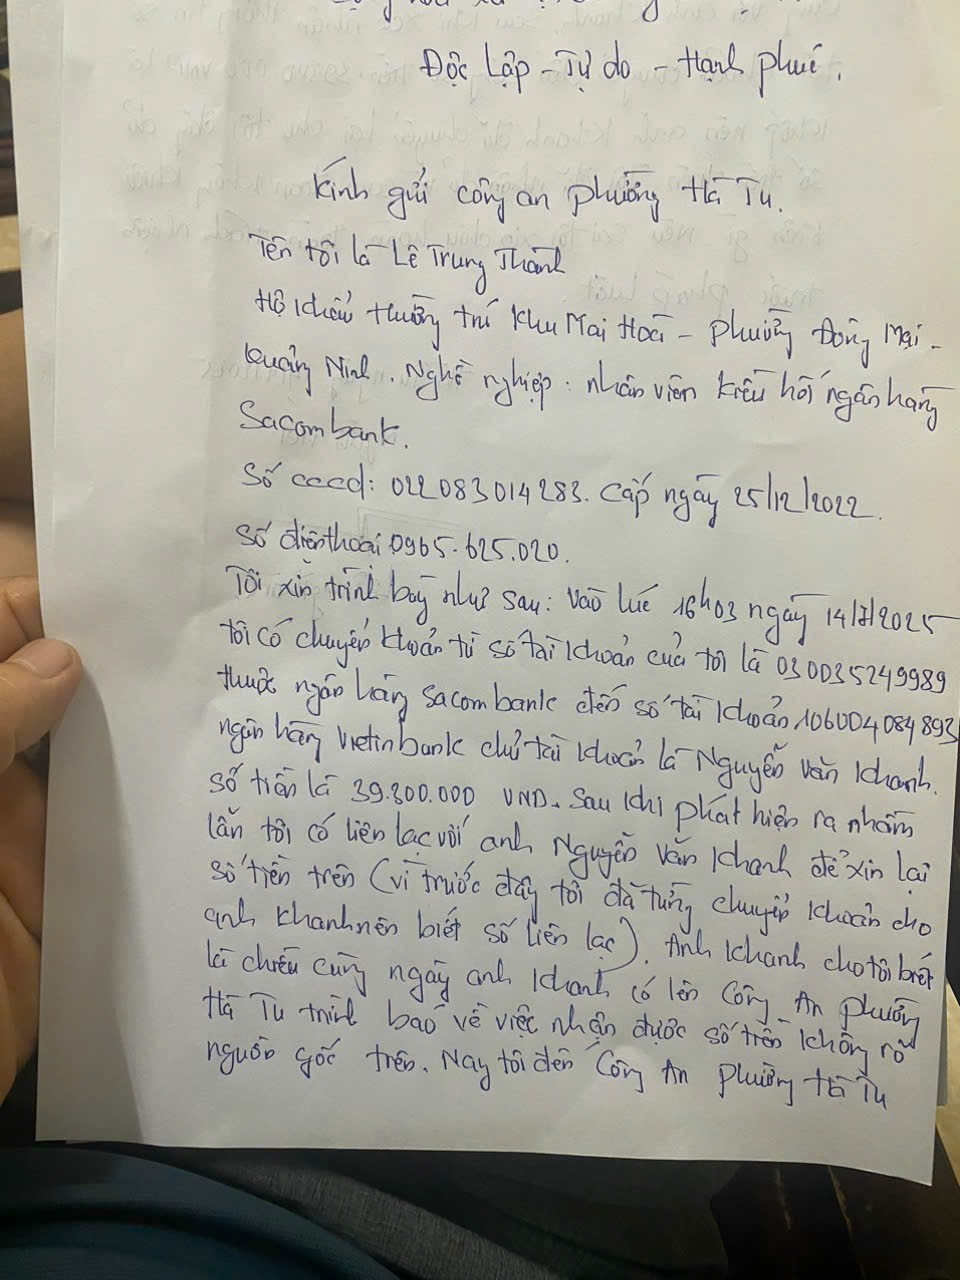 Độc Lập - Tự do - Hạnh phúc.
Kính gửi công an phường Hà Tu.
Tên tôi là Lê Trung Thành
Hộ khẩu thường trú Khu Mai Hoà - phường Đông Mai -
Quảng Ninh. Nghề nghiệp: nhân viên kiều hối ngân hàng
Sacombank.
Số cccd: 022083014283. cấp ngày 25/12/2022.
Số điện thoại 0965.625.020.
Tôi xin trình bày như sau: vào lúc 16h03 ngày 14/7/2025
tôi có chuyển khoản từ số tài khoản của tôi là 030035249989
thuộc ngân hàng Sacombank đến số tài khoản 106004084893
ngân hàng Vietinbank chủ tài khoản là Nguyễn Văn Khanh.
số tiền là 39.300.000 VND. Sau khi phát hiện ra nhầm
lẫn tôi có liên lạc với anh Nguyễn Văn Khanh để xin lại
số tiền trên (vì trước đây tôi đã từng chuyển khoản cho
anh Khanh nên biết số liên lạc). Anh Khanh cho tôi biết
là chiều cùng ngày anh Khanh có lên Công An phường
Hà Tu trình báo về việc nhận được số tiền không rõ
nguồn gốc trên. Nay tôi đến Công An phường Hà Tu